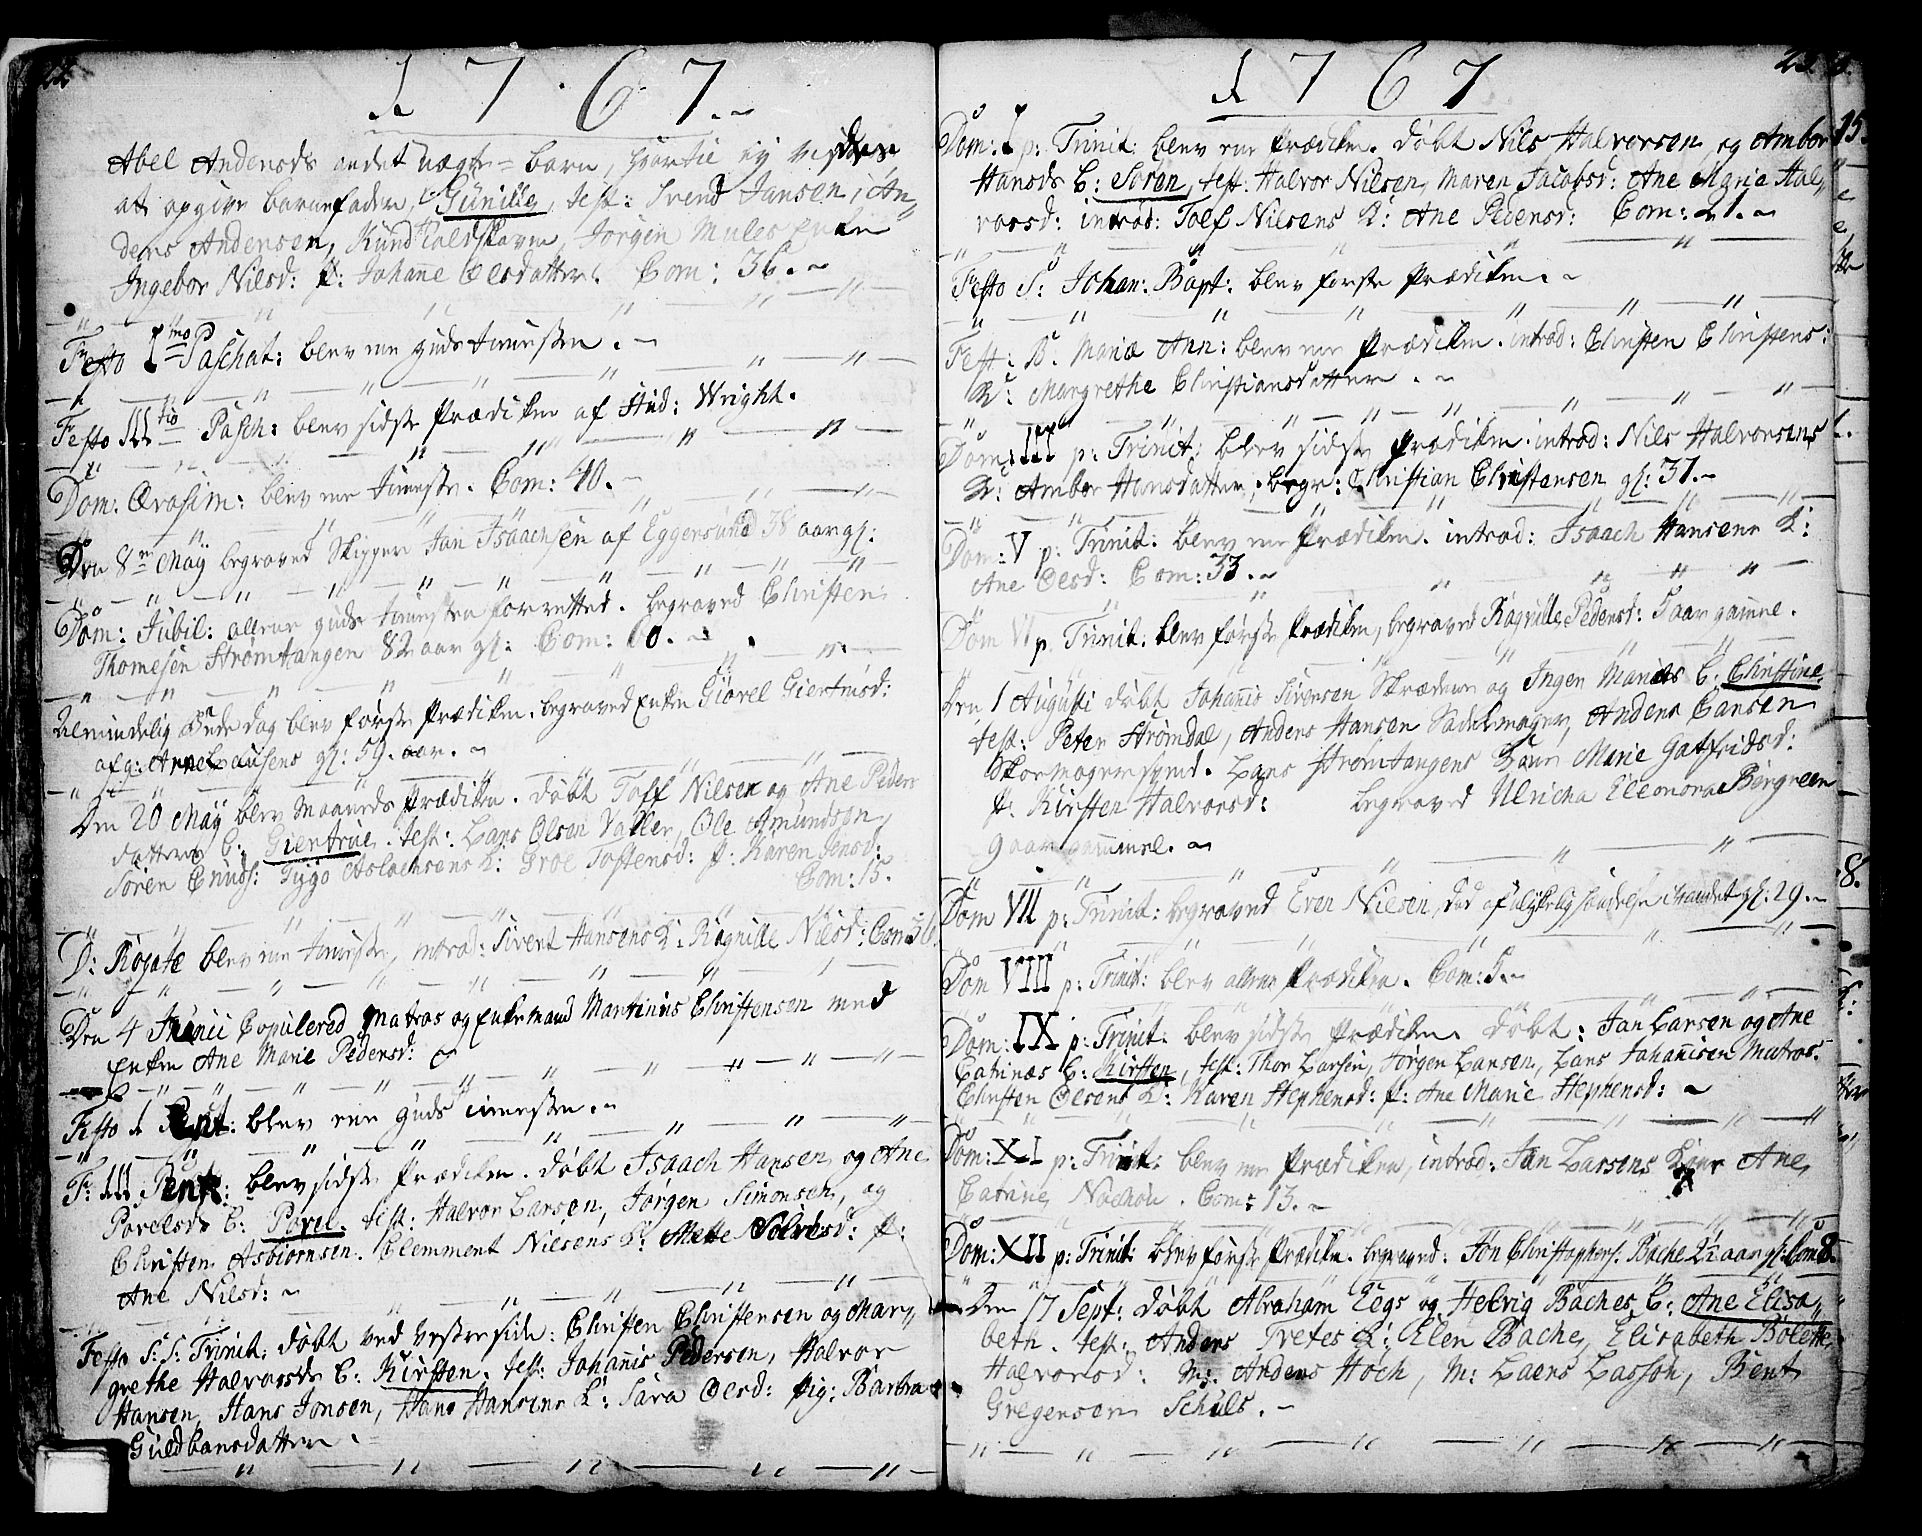 22
1767.
Abel Andersds andet uægte=barn, hvortil ey vidste
at opgive barnefader, Gunille, test: Svend Jansen, An„
ders Andersen, Kund Coldskavn, Jørgen Mules Enke
Ingebor Nilsd: p: Johanne Olsdatter. Com: 36.
Festo I Paschat: blev ene guds tienesten.
Festo III tio Pasch: blev sidste Prædiken af Stud: Wright.
Dom: Qvasim: blev ene tieneste. Com: 40.
Den 8de Maÿ begraved Skipper Jan Isaachsen af Eggersund 38 aar gl:
Dom: Jubil: allene guds tienesten forrettet. begraved Christen
Thomesen Strømtangen 82 aar gl: Com: 60.
Almindelig Bede dag blev første Prædiken. begraved Enken Giorel Giertrusd:
afg: Arne Lausens gl: 59. aar.
Den 20 Maÿ blev Maaneds Prædiken. døbt Tolf Nilsen og Ane Peders
datters B: Giertrue. test: Lars Olsen Valler, Ole Amundsen,
Søren Cnuds: Tygo Aslachsens K: Groe Tostensd: p: Karen Jensd:
Com: 15.
D: Rogate blev ene tieneste, introd: Sivert Hansens K: Ragnille Nilsd: Com: 36.
Den 4 Junii Copulered Matros og Enkemand Martinus Christensen med
Enken Ane Marie Pedersd:
Festo I Pent: blev ene guds tienesten.
F: III Pent: blev sidste Prædiken. døbt Isaach Hansen og Ane
Povelsds B: Povel. test: Halvor Larsen, Jørgen Simonsen, og
Christen Asbiørnsen. Clemment Nielsens K: Mette Solvesd: p:
Ane Nilsd:
Festo S: S: Trinit: døbt ved Vestre side: Christen Christensen og Mar„
grethe Halvorsds B: Kirsten. test: Johannis Pedersen, Halvor
Hansen, Hans Jonsen, Hans Hansens K: Sara Olsd: pig: Barbra
Guldbansdatter.
23
1767
Dom: I p: Trinit: blev ene Prædiken. døbt Nils Halvorsen og Ambor
Hansds B: Søren, test: Halvor Nilsen, Maren Jacobsd: Ane Maria Hal„
vorsd: introd: Tolf Nilsens K: Ane Pedersd: Com: 21.
Festo S: Johan: Bapt: blev første Prædiken.
Fest: B. Mariæ Ann: blev ene Prædiken. introd: Christen Christens:
K: Margrethe Christiansdatter.
Dom: III p: Trinit: blev sidste Prædiken. introd: Nils Halvorsens
K: Ambor Hansdatter, begr: Christian Christensen gl: 37.
Dom: V p: Trinit: blev ene Prædiken. introd: Isaach Hansens K:
Ane Olsd: Com: 33.
Dom VI p: Trinit: blev første Prædiken, begraved Ragnille Pedersd: 5 aar gamme.
Den 1 Augusti døbt Johannis Siversen Skræder og Inger Maries B: Christine.
test: Peter Strømdal, Anders Hansen Sadelmager, Anders Larsen
Skoemagersvend. Lars Strømtangens Kone Marie Gotfridsd:
p: Kirsten Halvorsd: begraved Ulricha Eleonora Borgreen
9 aar gammel.
Dom VII p: Trinit: begraved Even Nilsen, død af ulykelig hendelse i vandet gl: 29.
Dom VIII p: Trinit: blev allene Prædiken. Com: 5.
Dom: IX p: Trinit: blev sidste Prædiken. døbt: Jan Larsen og Ane
Catrines B: Kirsten, test: Thor Larsen, Jørgen Larsen, Lars Johannisen Matros.
Christen Olsens K: Karen Stephensd: p: Ane Marie Stephensd:
Dom: XI p: Trinit: blev ene Prædiken, introd: Jan Larsens Kone Ane
Catrine Nochou. Com: 13.
Dom: XII p: Trinit: blev første Prædiken. begraved: Jon Christophers: Bache 2½ aar gl: Com: 8.
Den 17 Sept: døbt Abraham Eegs og Helvig Baches B: Ane Elisa„
beth. test: Anders Tvetes K: Elen Bache, Elisabeth Bolette
Halvorsd: M: Anders Hoch, M: Laers Lasson, Bent
Gregersen Schuls.